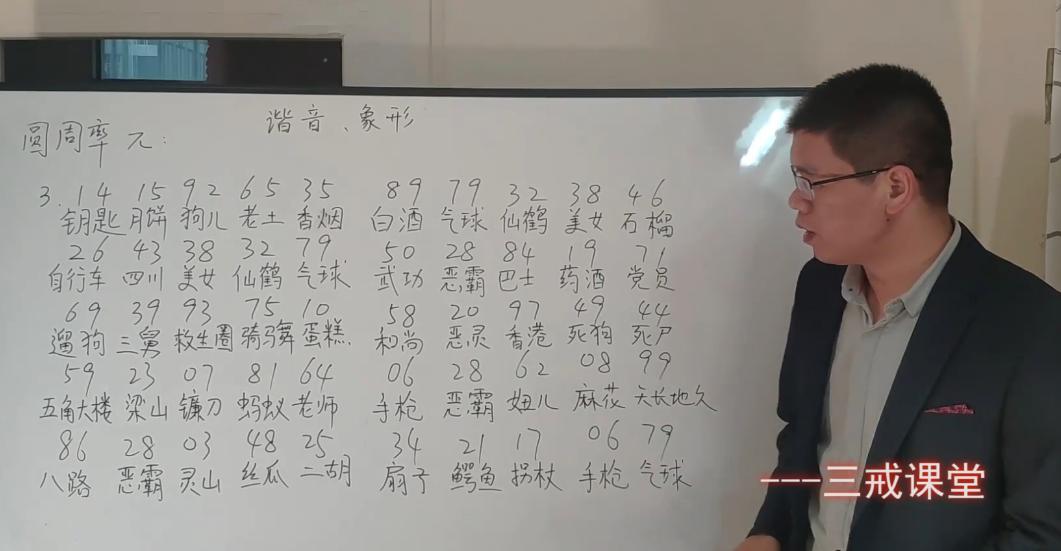 谐音、象形
圆周率π:
3.14 15 92 65 35 89 79 32 38 46
钥匙 月饼 狗儿 老土 香烟 白酒 气球 仙鹤 美女 石榴
26 43 38 32 79 50 28 84 19 71
自行车 四川 美女 仙鹤 气球 武功 恶霸 巴士 药酒 党员
69 39 93 75 10 58 20 97 49 44
遛狗 三舅 救生圈 骑马舞 蛋糕 和尚 恶灵 香港 死狗 死尸
59 23 07 81 64 06 28 62 08 99
五角大楼 梁山 镰刀 蚂蚁 老师 手枪 恶霸 妞儿 麻花 天长地久
86 28 03 48 25 34 21 17 06 79
八路 恶霸 灵山 丝瓜 二胡 扇子 鳄鱼 拐杖 手枪 气球
---三戒课堂